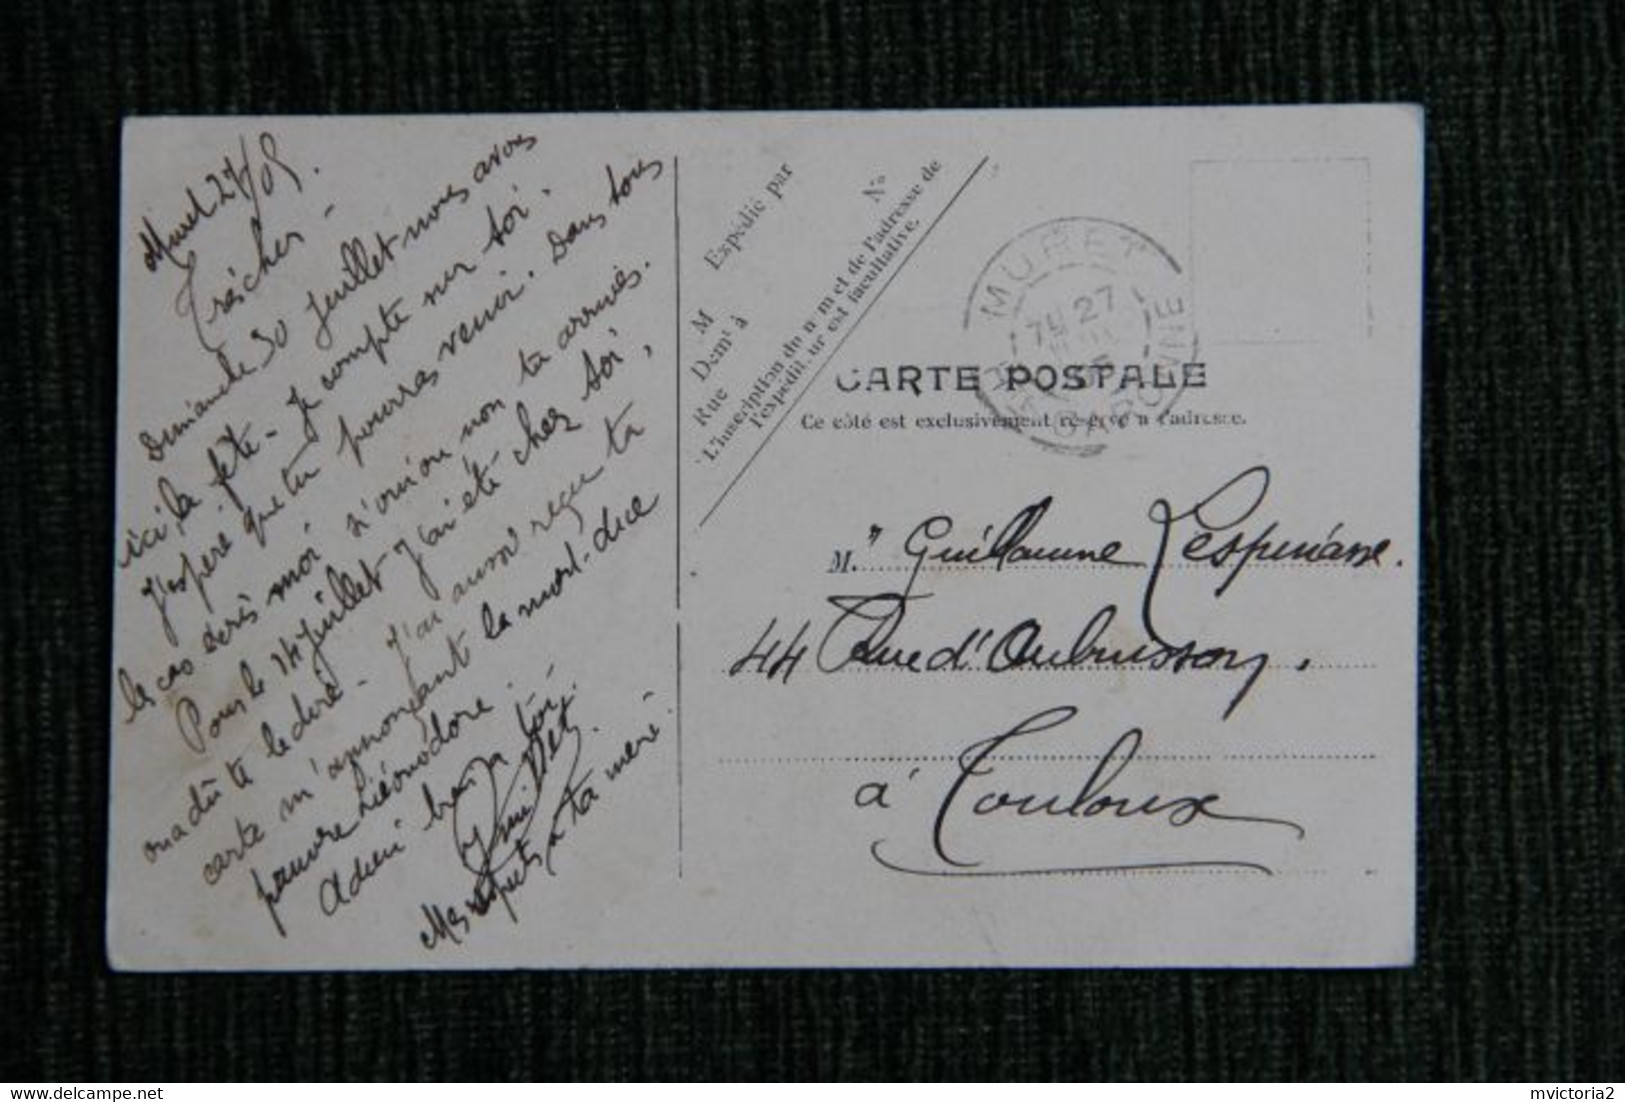 Muret 27/05.
Très cher -
Dimanche 30 Juillet nous avons
ici la fête - Je compte sur toi.
J'espère que tu pourras venir. Dans tous
les cas écris moi si oui ou non tu arrives.
Pour le 14 Juillet J'ai été chez toi,
on a dû te le dire - J'ai aussi reçu ta
carte m'annonçant la mort de ce
pauvre Liéonodore.
Adieu bien à toi
Mes respects à ta mère
M Expédié par
M
Demt à
Rue No
L'inscription du nom et de l'adresse de
l'expéditeur est facultative.
MURET
27
05
GARONNE
CARTE POSTALE
Ce côté est exclusivement réservé à l'adresse.
M. Guillaume Lespinasse.
44 Rue d'Aubuisson,
à Toulouse
mvictoria2